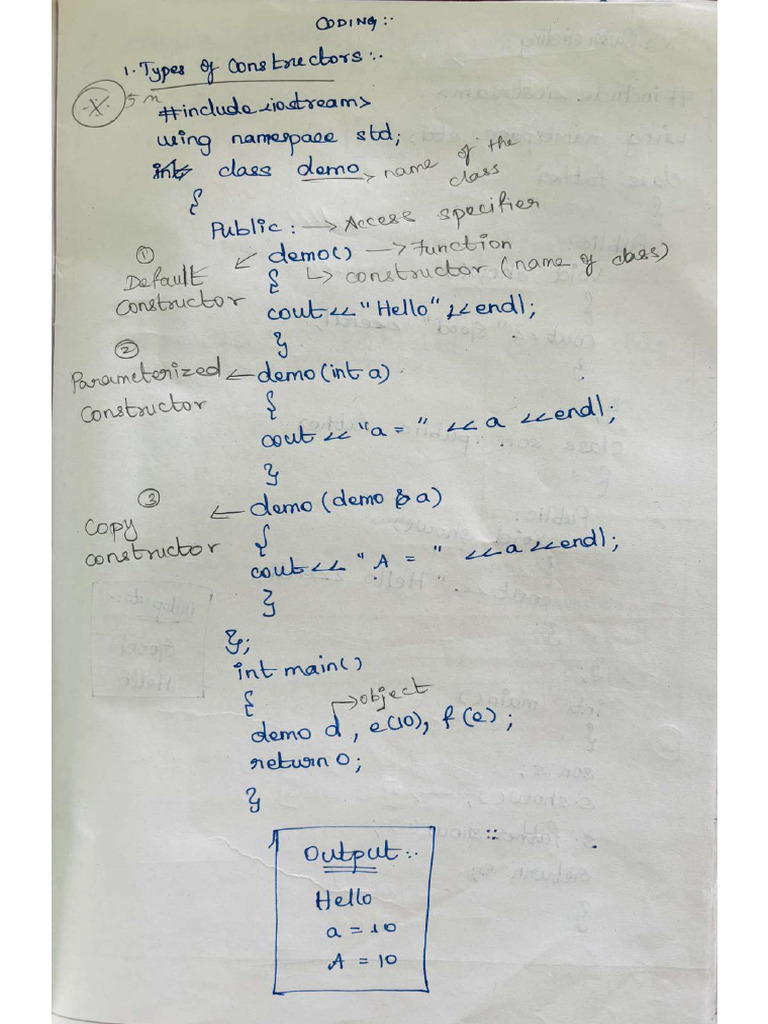 CODING:-
1. Types of Constructors:-
*X* 5m
#include<iostream>
using namespace std;
class demo → name of the class
{
Public: → Access specifier
① Default Constructor ← demo() → Function
{ ↳ constructor (name of class)
cout<<"Hello"<<endl;
}
② Parameterized Constructor ← demo(int a)
{
cout<<"a = " <<a <<endl;
}
③ Copy constructor ← demo(demo &a)
{
cout<<"A = " <<a<<endl;
}
};
int main()
{
→ object
demo d, e(10), f(e);
return 0;
}
Output:-
Hello
a = 10
A = 10